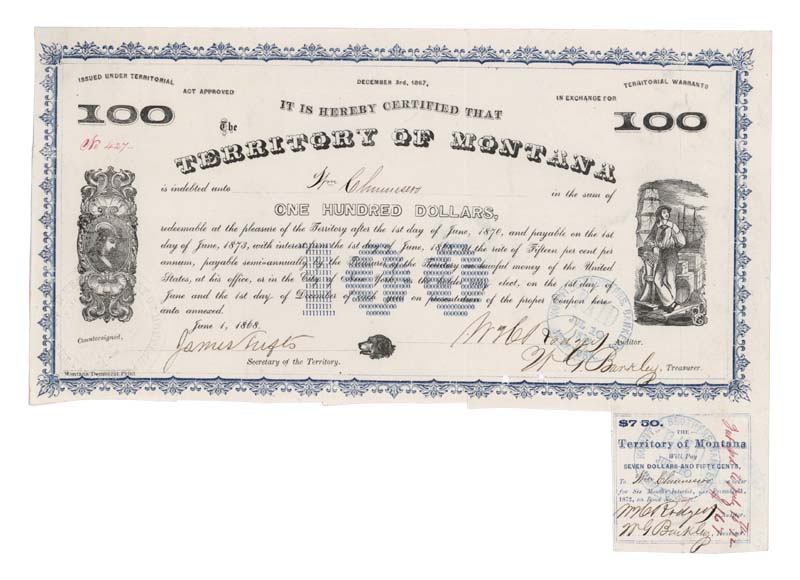 ISSUED UNDER TERRITORIAL ACT APPROVED DECEMBER 3rd, 1867, IN EXCHANGE FOR TERRITORIAL WARRANTS
100
100
IT IS HEREBY CERTIFIED THAT
No 427
The
TERRITORY OF MONTANA
is indebted unto Wm in the sum of
ONE HUNDRED DOLLARS,
redeemable at the pleasure of the Territory after the 1st day of June, 1870, and payable on the 1st
day of June, 1873, with interest from the 1st day of June, at the rate of Fifteen per cent per
annum, payable semi-annually by the Treasurer of the Territory in lawful money of the United
States, at his office, or in the City of New York, elect, on the 1st day of
June and the 1st day of December of each year on presentation of the proper Coupon here-
unto annexed.
100
June 1, 1868.
Countersigned,
James Tufts
Secretary of the Territory.
Wm C Rodgers, Auditor.
W G Barkley, Treasurer.
Montana Democrat Print
$7 50.
THE
Territory of Montana
Will Pay
SEVEN DOLLARS AND FIFTY CENTS,
To Wm
for Six Months Interest,
1872, on Bond
W C Rodgers
W G Barkley